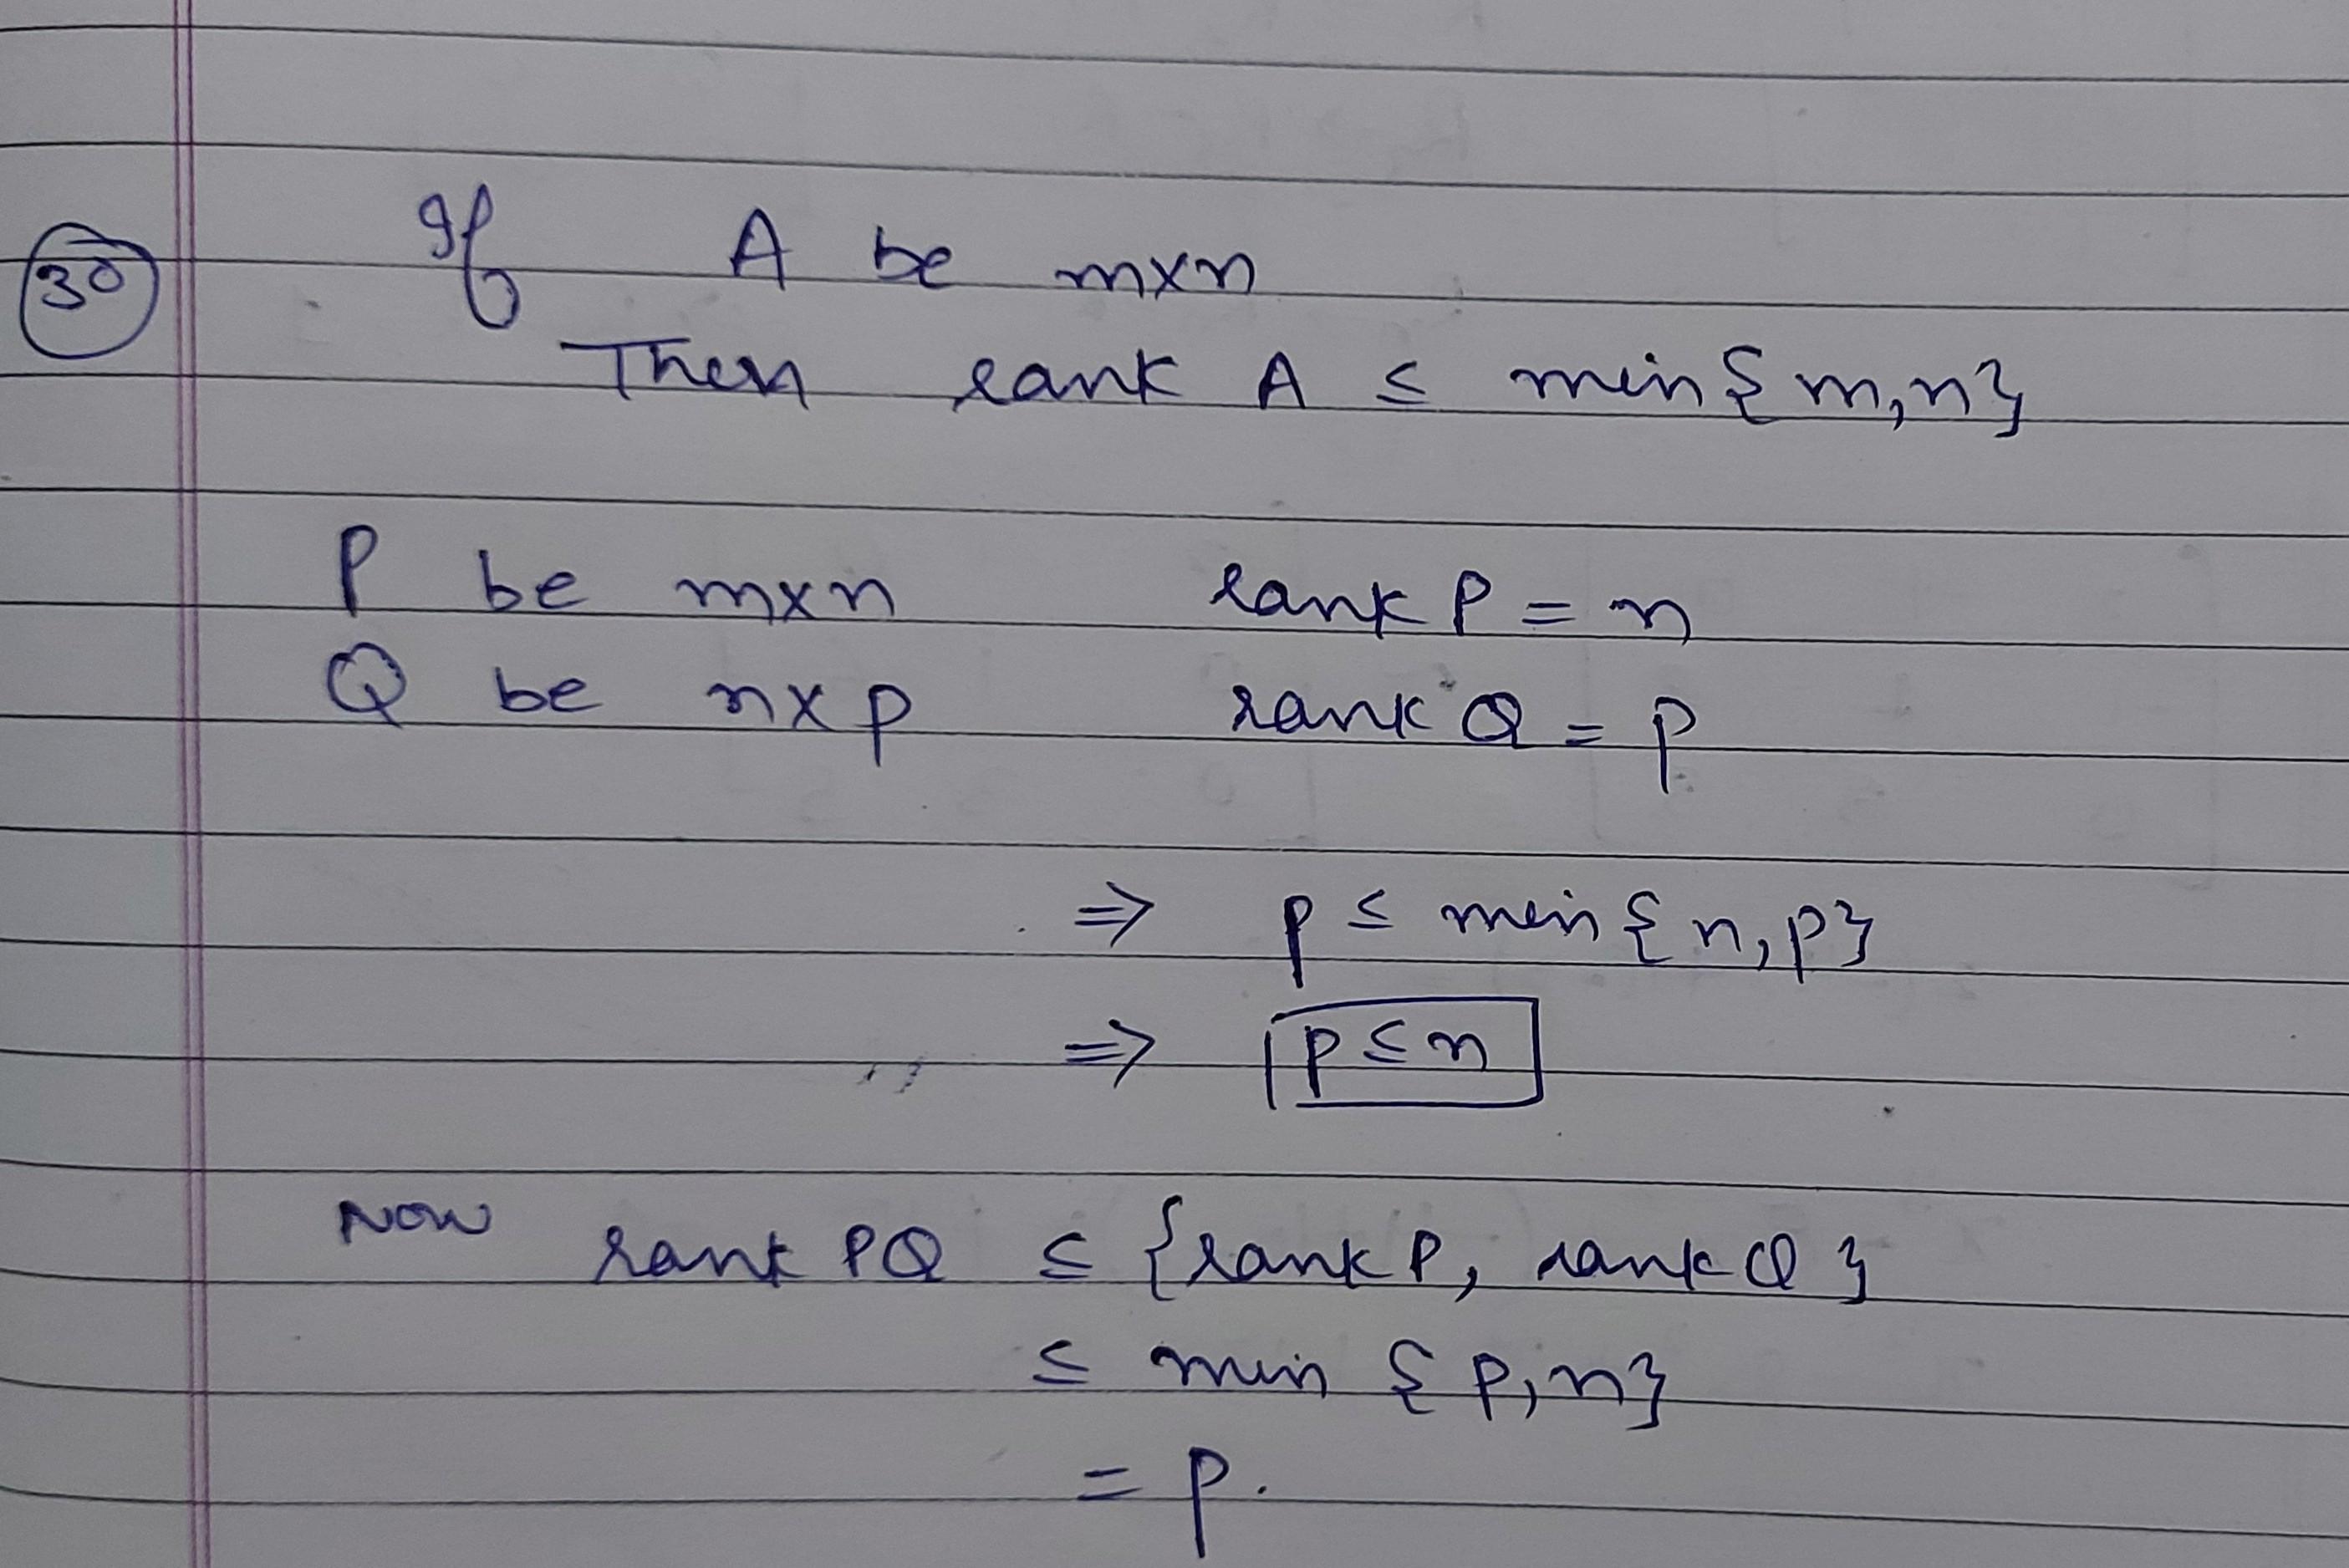 30 If A be m×n
Then rank A ≤ min{m,n}
P be m×n rank P = n
Q be n×p rank Q = p
⇒ p ≤ min{n,p}
⇒ p ≤ n
Now rank PQ ≤ {rank P, rank Q}
≤ min {p,n}
= p.